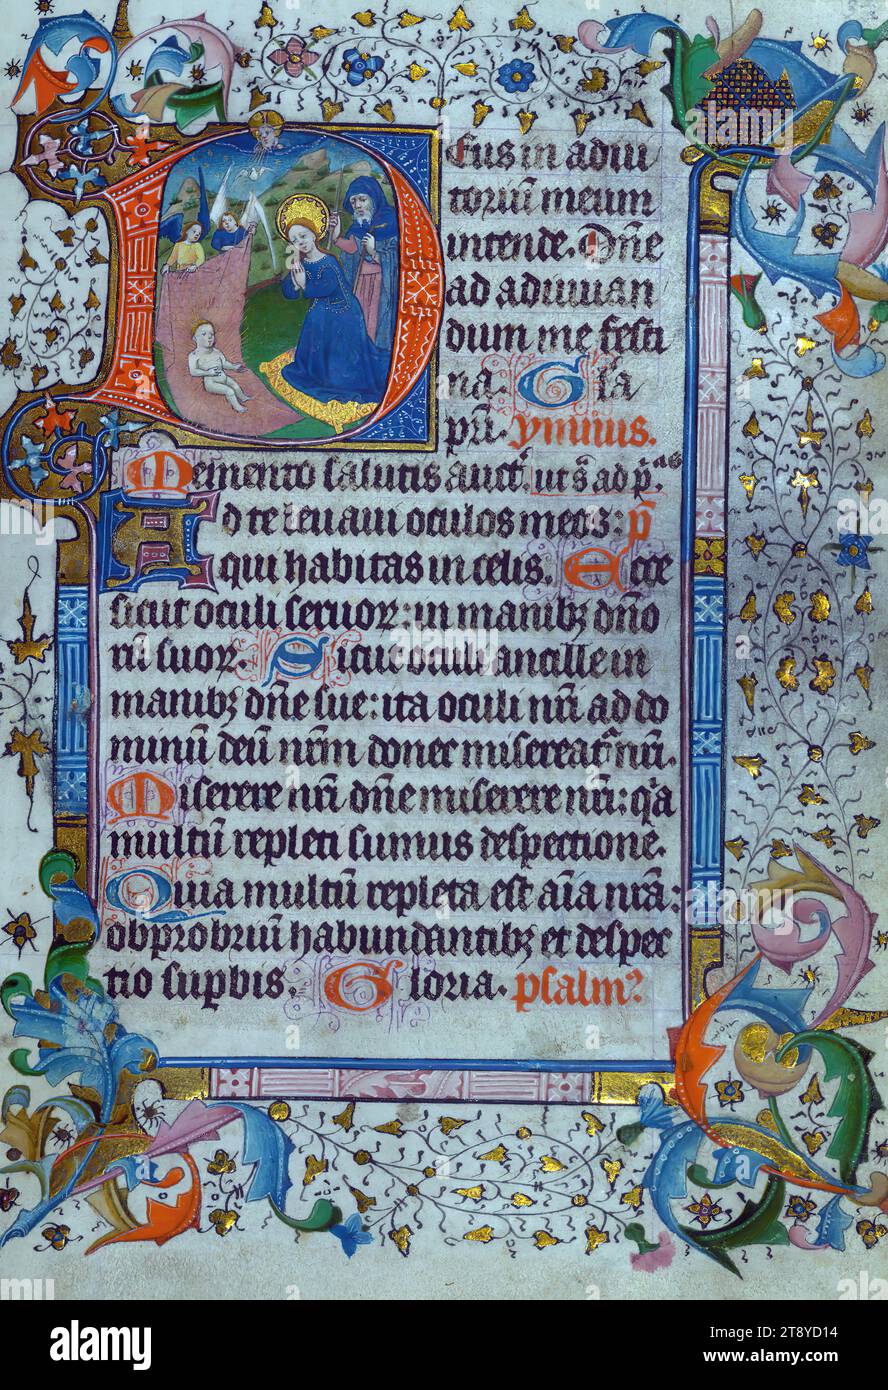 Deus in adiu
toriū meum
intende. Dn̄e
ad adiuuan
dum me festi
na. Gl̄a
pr̄i. ymnus.
Memento salutis auct᷑. ut s̄ ad p᷑mā
Ad te leuaui oculos meos: 
qui habitas in celis. Ecce
sicut oculi seruoꝝ: in manibꝫ dn̄o
rū suoꝝ. Sicut oculi ancille in
manibꝫ dn̄e sue: ita oculi nr̄i ad do
minū deū nr̄m donec misereat᷑ nr̄i.
Miserere nr̄i dn̄e miserere nr̄i: qͥa
multū repleti sumus despectione.
Quia multū repleta est aīa nr̄a:
obprobriū habundantibꝫ et despec
tio supbis. Gloria. psalmꝰ
alamy
Image ID: 2T8YD14
www.alamy.com